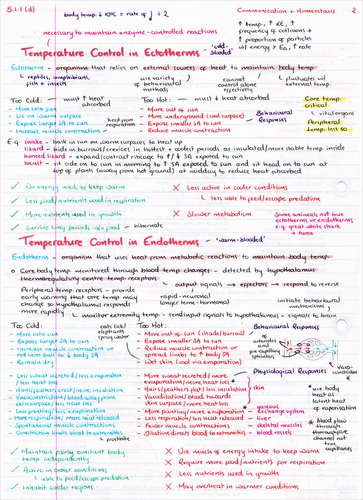 5.1.1 (d)
Communication + Homeostasis 2
body temp ↓ KMS = rate of
necessary to maintain enzyme-controlled reactions
↑ temp, ↑ KE, ↑
frequency of collisions +
↑ proportion of particles
w/ energy > Ea, ↑ rate
Temperature Control in Ectotherms 'cold-blooded'
Ectotherm - organism that relies on external sources of heat to maintain body temp
↳ reptiles, amphibians, fish + insects
use variety of behavioural methods
cannot control alone effectively
↳ fluctuates w/ external temp.
Too Cold: must ↑ heat absorbed
Too Hot: must ↓ heat absorbed
Core temp critical
↳ vital organs
Peripheral temp. less so
→ More into sun
→ Lie on warm surface
→ Expose larger SA to sun
→ Increase muscle contractions
heat from respiration
→ More out of sun
→ Move underground (cool surface)
→ Expose smaller SA to sun
→ Reduce muscle contraction
Behavioural Responses
E.g. snake - bask in sun on warm surfaces to heat up
lizard - hide in burrows/crevices in hottest + coolest periods as insulated/more stable temp inside
horned lizard - expand/contract ribcage to ↑/↓ SA exposed to sun
locust - sit side on to sun in morning to ↑ SA exposed to sun and sit head on to sun at
top of plants (away from hot ground) at midday to reduce heat absorbed
✓ No energy used to keep warm
✓ Less food/nutrients used in respiration
✓ More nutrients used in growth
✓ Survive long periods w/o food ↳ hibernate
✗ Less active in cooler conditions
↳ less able to feed/escape predation
✗ Slower metabolism
Some animals not true ectotherms or endotherms e.g. great white shark + tuna
Temperature Control in Endotherms 'warm-blooded'
Endotherm - organism that uses heat from metabolic reactions to maintain body temp.
Core body temp monitored through blood temp changes - detected by hypothalamus
thermoregulatory centre temp receptors
Peripheral temp receptors - provide
early warning that core temp may
change to hypothalamus responds
more rapidly
output signals → effectors → respond to reverse
rapid - neuronal
longer term - hormonal
initiate behavioural mechanisms
↳ monitor extremity temp → send input signals to hypothalamus → signals to brain
Too Cold:
Too Hot:
→ More into sun
→ Expose larger SA to sun
→ Increase muscle contraction or
roll into ball to ↓ body SA
→ Remain dry
→ More out of sun (shade/burrow)
→ Expose smaller SA to sun
→ Reduce muscle contraction or
spread limbs to ↑ body SA
→ Wet skin (cool via evaporation)
Behavioural Responses
Physiological Responses
→ Less sweat secreted/less evaporation
/ less heat lost
→ Hairs/feathers erect/more insulation
→ Vasoconstriction/blood away from
skin surface/less heat lost
→ Less panting/less evaporation
→ More respiration/more heat released
→ Spontaneous muscle contractions
→ Constriction limits blood to extremities
→ More sweat secreted/more
evaporation/more heat lost
→ Hairs/feathers flat/less insulation
→ Vasodilation/blood towards
skin surface/more heat lost
→ More panting/more evaporation
→ Less respiration/less heat released
→ Fewer muscle contractions
→ Dilation directs blood to extremities
skin
gaseous exchange system
liver
skeletal muscles
blood vessels
use body heat as latent heat of vaporisation
✓ Maintain fairly constant body
temp independently
✓ Active in cooler conditions
↳ able to feed/escape predation
✓ Inhabit colder regions
✗ Use much of energy intake to keep warm
✗ Require more food/nutrients for respiration
✗ Less nutrients used in growth
✗ May overheat in warmer conditions